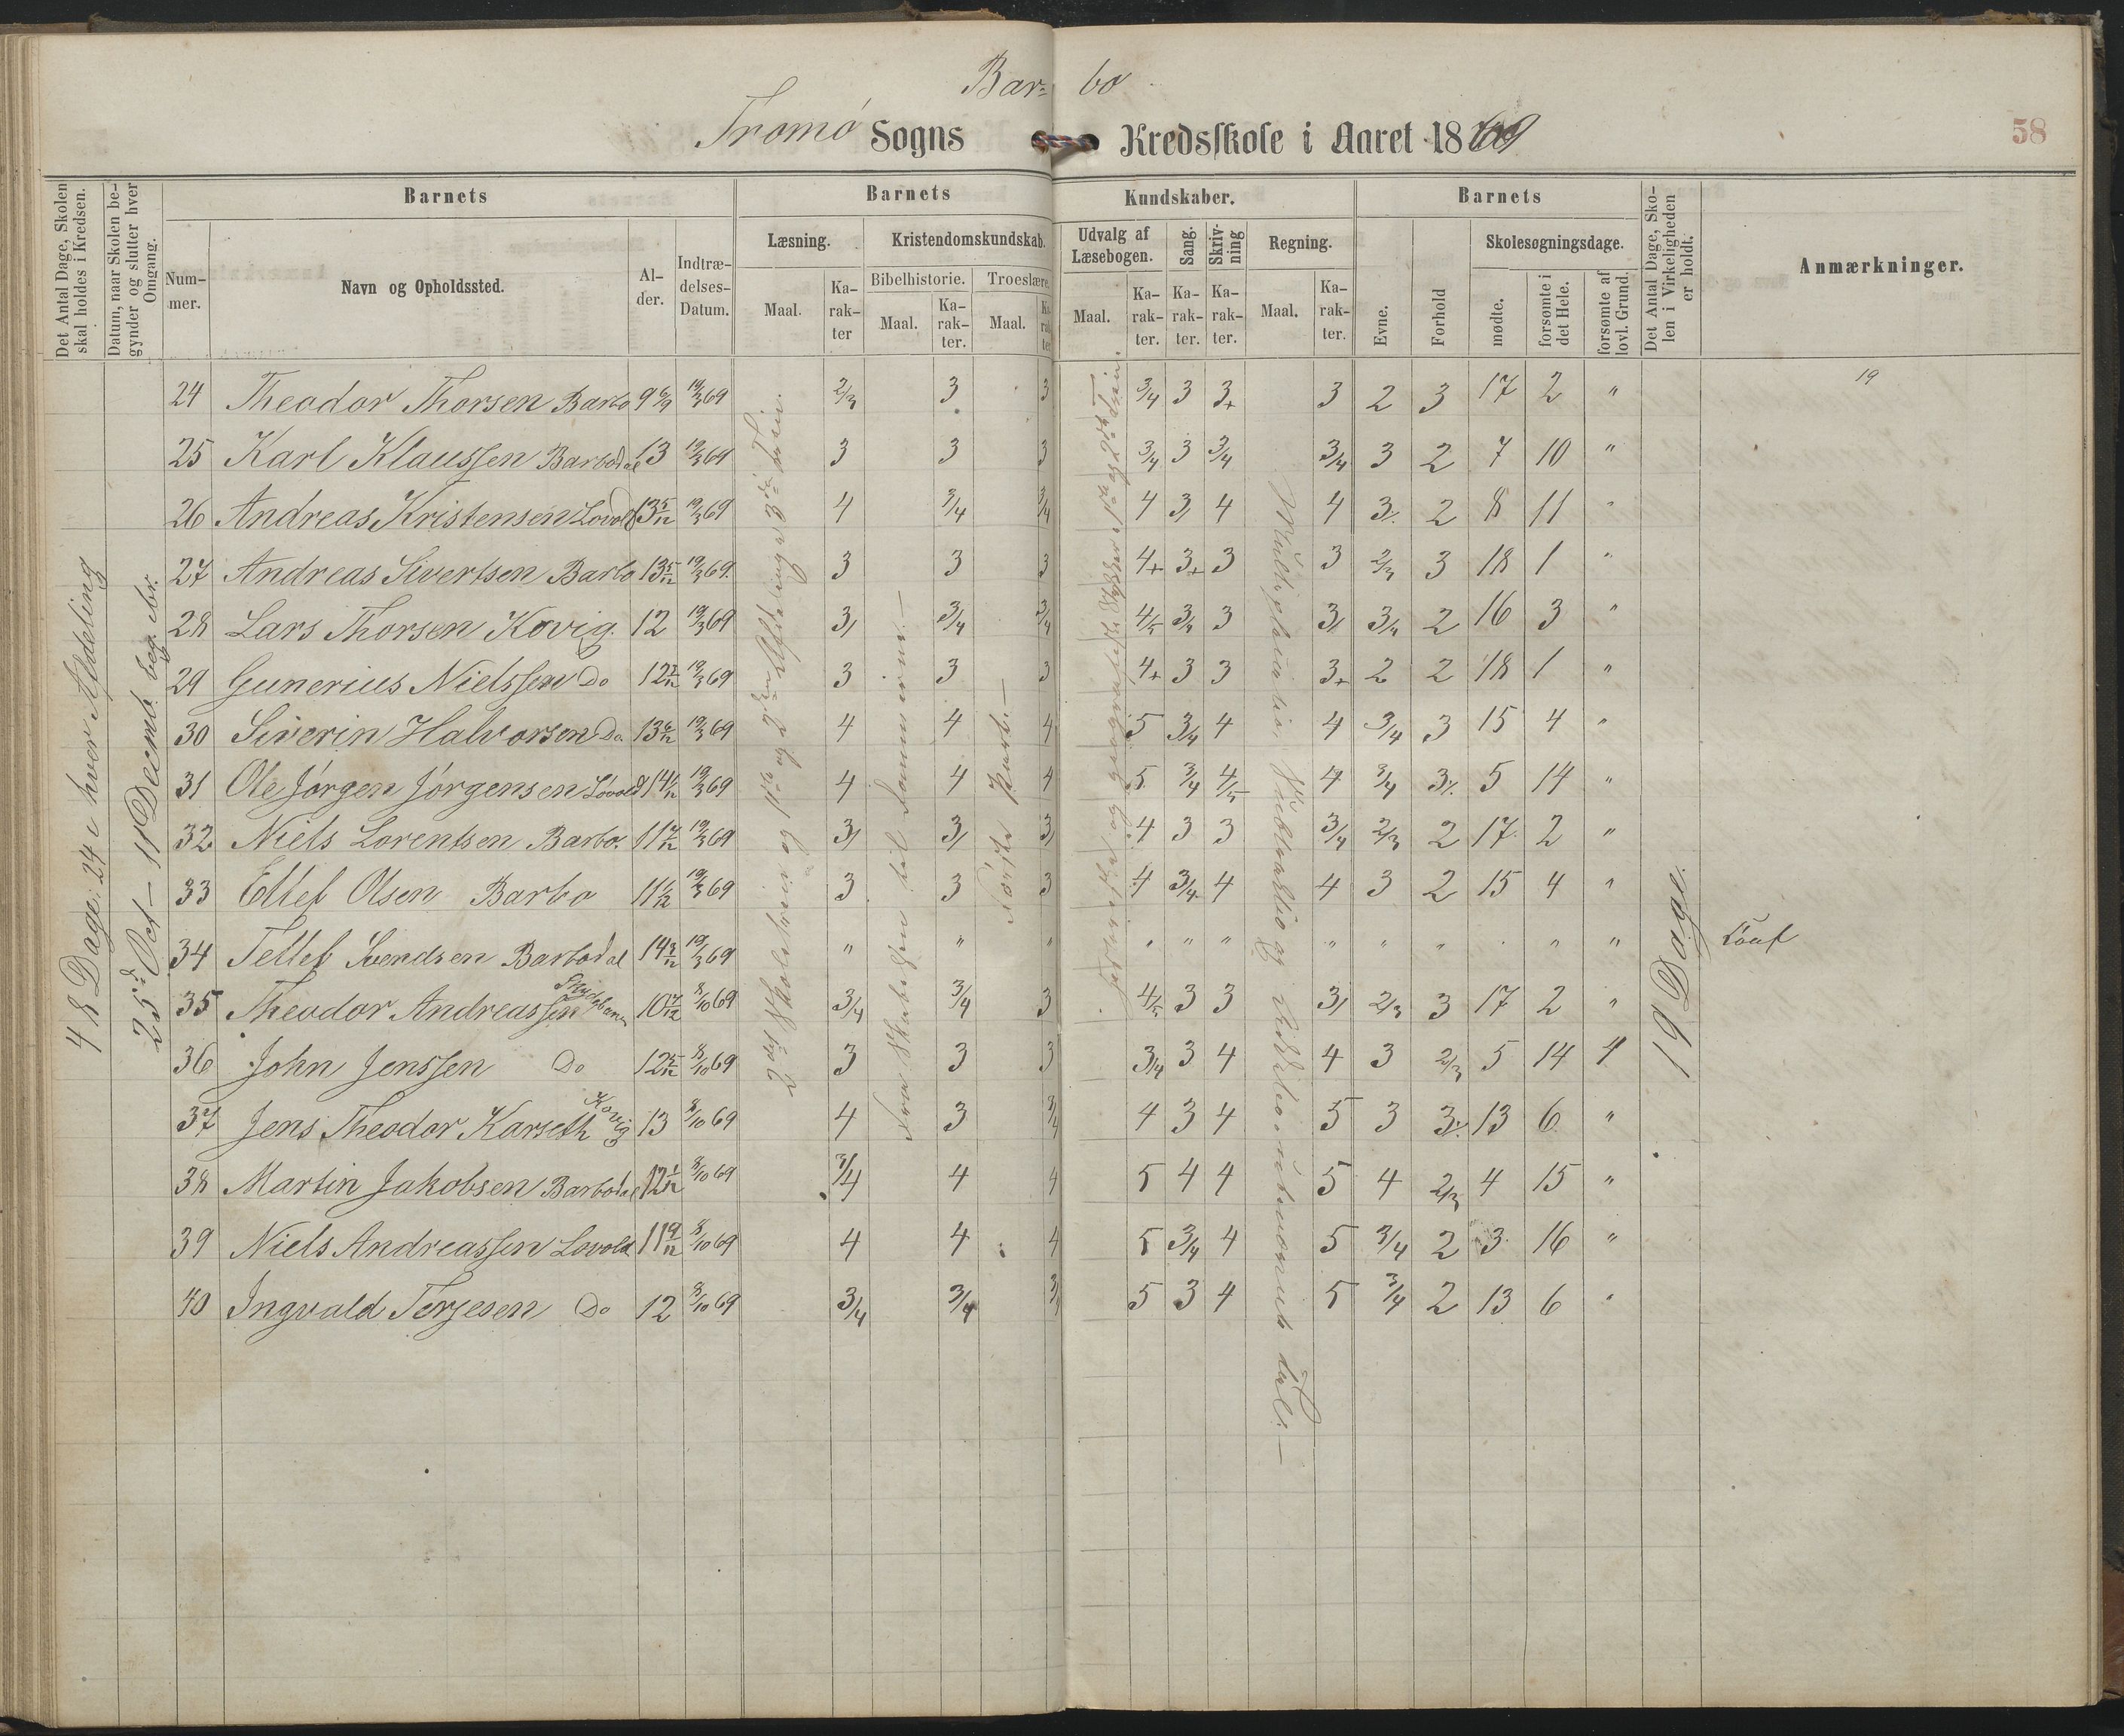 Bar= bo
Tromø Sogns Kredsskole i Aaret 1869
58
Det Antal Dage, Skolen skal holdes i Kredsen.
Datum, naar Skolen be-gynder og slutter hver Omgang.
Barnets
Barnets
Kundskaber.
Barnets
Det Antal Dage, Sko-len i Virkeligheden er holdt.
Anmærkninger.
Num-mer.
Navn og Opholdssted.
Al-der.
Indtræ-delses-Datum.
Læsning.
Kristendomskundskab.
Udvalg af Læsebogen.
Sang.
Skriv-ning
Regning.
Evne.
Forhold
Skolesøgningsdage.
Bibelhistorie.
Troeslære.
Maal.
Ka-rak-ter
Maal.
Ka-rak-ter.
Maal.
Ka-rak-ter
Maal.
Ka-rak-ter.
Ka-rak-ter.
Ka-rak-ter.
Maal.
Ka-rak-ter.
mødte.
forsømte i det Hele.
forsømte af lovl. Grund.
48 Dage: 24 i hver Afdeling
25d Oct – 11 Decemb.
24 Theodor Thorsen Barbo 9 6/9 19/3 69 2/3 3 3 3/4 3 3+ 3 2 3 17 2 " 19
25 Karl Klaussen Barbodal 13 19/3 69 3 3 3 3/4 3 3/4 3/4 3 2 7 10 "
26 Andreas Kristensen Lovold 13 5/12 19/3 69 4 3/4 3/4 4 3/ 4 4 3 2 8 11 "
27 Andreas Sivertsen Barbo 13 5/12 19/3 69. 3 3 3 4+ 3+ 3 3 2/3 3 18 1 "
28 Lars Thorsen Kovig. 12 19/3 69 3/ 3/4 3/4 4/5 3/4 3 3/ 3/4 2 16 3 "
29 Gunerius Nielssen Do 12 3/12 19/3 69 3 3 3 4+ 3 3 3+ 2 2 18 1 "
30 Siverin Halvorsen Do. 13 6/12 19/3 69 4 4 4 5 3/4 4 4 3/4 3 15 4 "
31 Ole Jørgen Jørgensen Lovold 14 19/3 69 4 4 4 5 3/4 4/5 4 3/4 3 5 14 "
32 Niels Lorentsen Barbo. 11 7/12 19/3 69 3/ 3/ 3/ 4 3 3 3/4 2/3 2 17 2 "
33 Ellef Olsen Barbo 11 19/3 69 3 3 3 4 3/4 4 4 3 2 15 4 "
34 Tellef Svendsen Barbodal 14 3/12 19/3 69 " " " " " " " " " " " "
35 Theodor Andreassen 10 7/12 8/10 69 3/4 3/4 3 4/5 3 3 3/ 2/3 3 17 2 "
36 John Jenssen Do 12 5/12 8/10 69 3 3 3 3/4 3 4 4 3 2/3 5 14 4
37 Jens Theodor Karseth Kovig 13 8/10 69 4 3 3/4 4 3 4 5 3 3 13 6 "
38 Martin Jakobsen Barbodal 12 1/12 8/10 69 3/4 4 4 5 4 4 5 4 2/3 4 15 "
39 Niels Andreassen Lovold 11 9/12 8/10 69 4 4 4 5 3/4 4 5 3/4 2 3 16 "
40 Ingvald Terjesen Do 12 8/10 69 3/4 3/4 3/4 5 3 4 5 3/4 2 13 6 "
19 Dage.